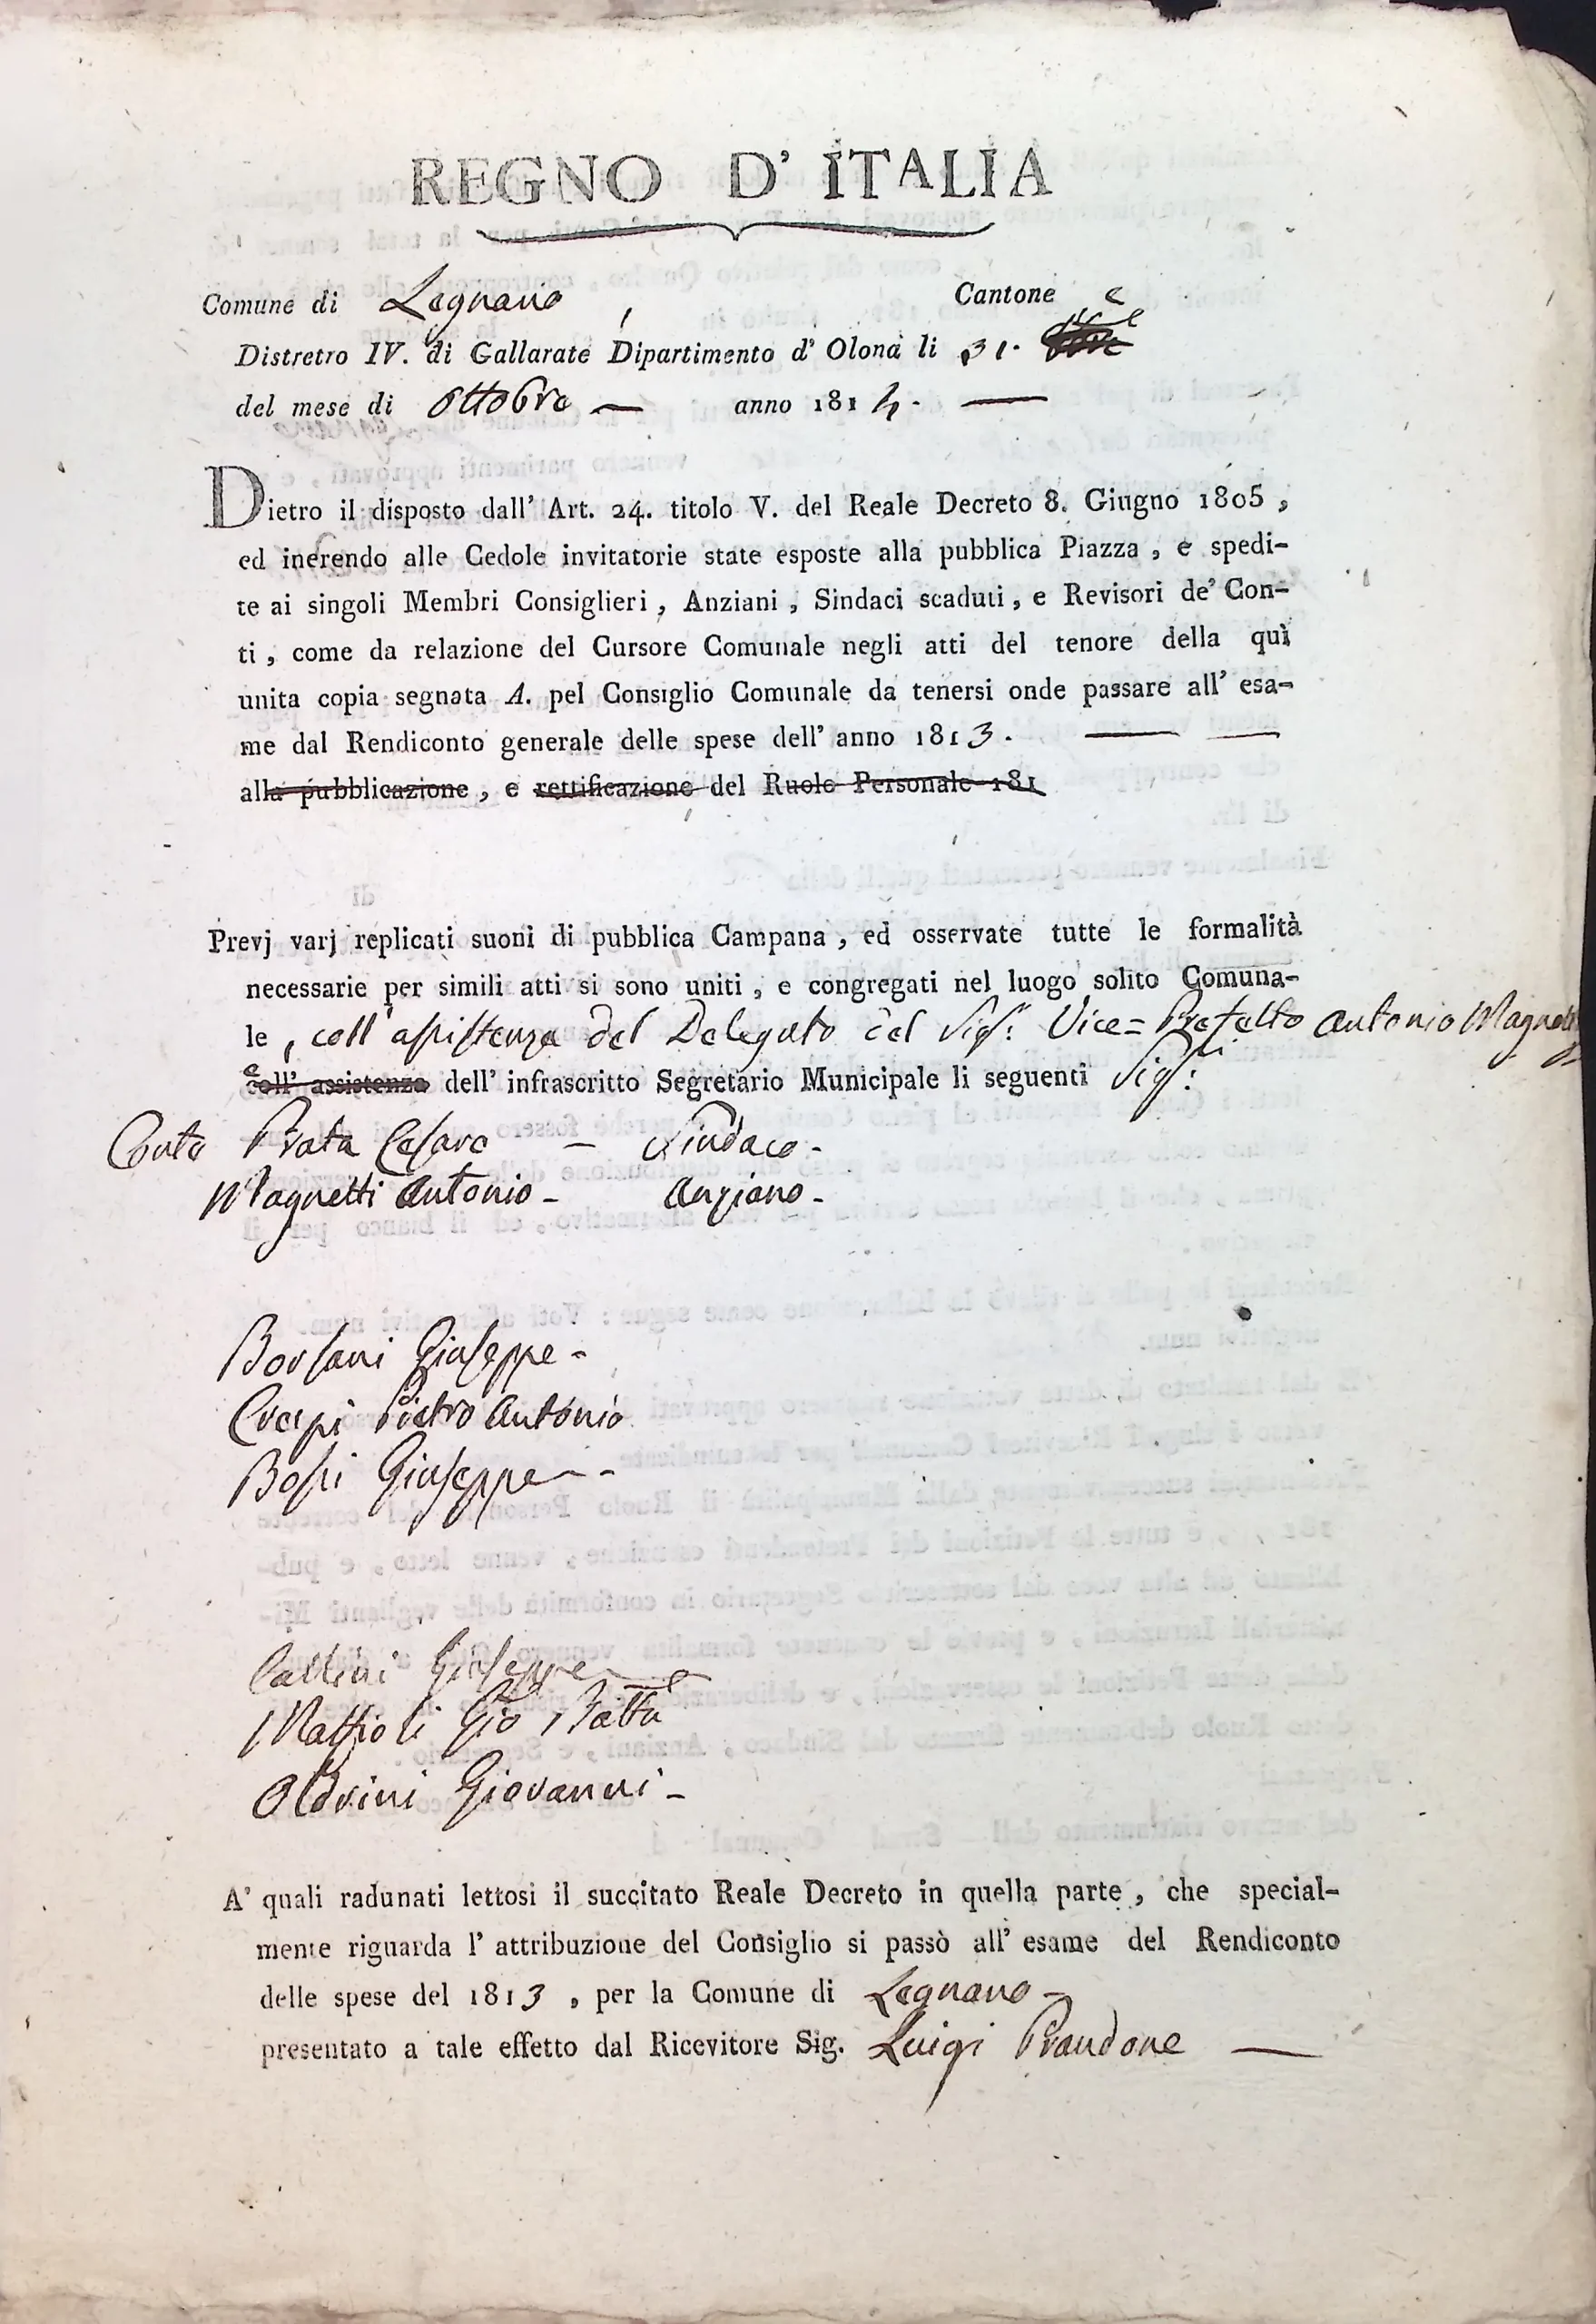 REGNO D' ITALIA
Comune di Legnano , Cantone e
Distretro IV. di Gallarate Dipartimento d' Olona li 31.
del mese di Ottobre — anno 1814. —
Dietro il disposto dall' Art. 24. titolo V. del Reale Decreto 8. Giugno 1805 ,
ed inerendo alle Cedole invitatorie state esposte alla pubblica Piazza , e spedi-
te ai singoli Membri Consiglieri , Anziani , Sindaci scaduti , e Revisori de' Con-
ti , come da relazione del Cursore Comunale negli atti del tenore della quì
unita copia segnata A. pel Consiglio Comunale da tenersi onde passare all' esa-
me dal Rendiconto generale delle spese dell' anno 1813. — —
alla pubblicazione , e rettificazione del Ruolo Personale 181
Prevj varj replicati suoni di pubblica Campana , ed osservate tutte le formalità
necessarie per simili atti si sono uniti , e congregati nel luogo solito Comuna-
le , coll' assistenza del Delegato del Sigr. Vice= Prefetto Antonio Magnetti
e coll' assistenza dell' infrascritto Segretario Municipale li seguenti Sigri:
Conte Prata Cesare — Sindaco -
Magnetti Antonio - Anziano -
Borsani Giuseppe -
Crespi Pietro Antonio
Bossi Giuseppe - -
Callini Giuseppe
Maffioli Gio Batta
Oldrini Giovanni -
A' quali radunati lettosi il succitato Reale Decreto in quella parte , che special-
mente riguarda l' attribuzione del Consiglio si passò all' esame del Rendiconto
delle spese del 1813 , per la Comune di Legnano -
presentato a tale effetto dal Ricevitore Sig. Luigi Prandone —